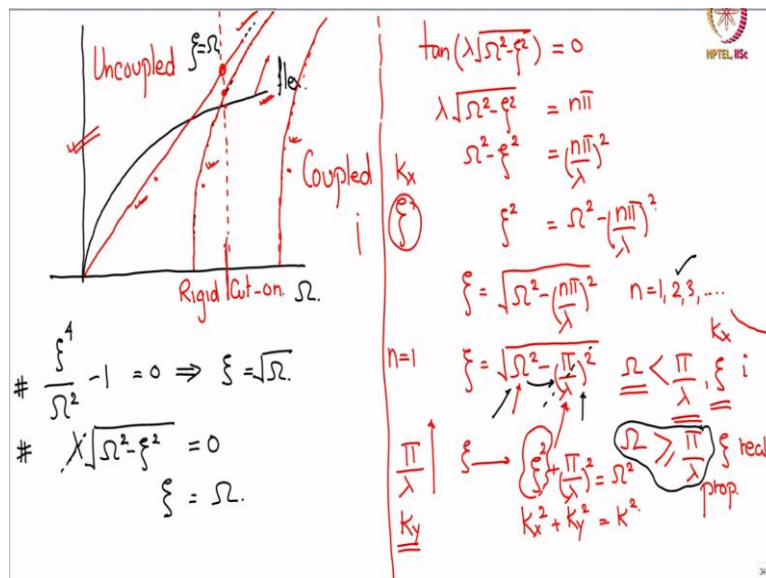 Uncoupled ξ=Ω
flex.
Coupled
i
Rigid Cut-on Ω.
# ξ⁴/Ω² - 1 = 0 ⇒ ξ = √Ω.
# λ√Ω²-ξ² = 0
ξ = Ω.
tan(λ√Ω²-ξ²) = 0
λ√Ω²-ξ² = nπ
Ω²-ξ² = (nπ/λ)²
kx
ξ² ξ² = Ω² - (nπ/λ)²
ξ = √Ω² - (nπ/λ)² n=1,2,3,....
kx
n=1 ξ = √Ω² - (π/λ)² Ω < π/λ, ξ i
π/λ ξ → ξ² + (π/λ)² = Ω² Ω ≥ π/λ ξ real
prop.
ky kx² + ky² = k²
NPTEL, IISc
34